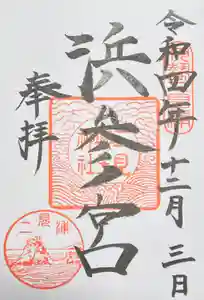 令和四年十二月三日
浜参宮
奉拝
二見浦